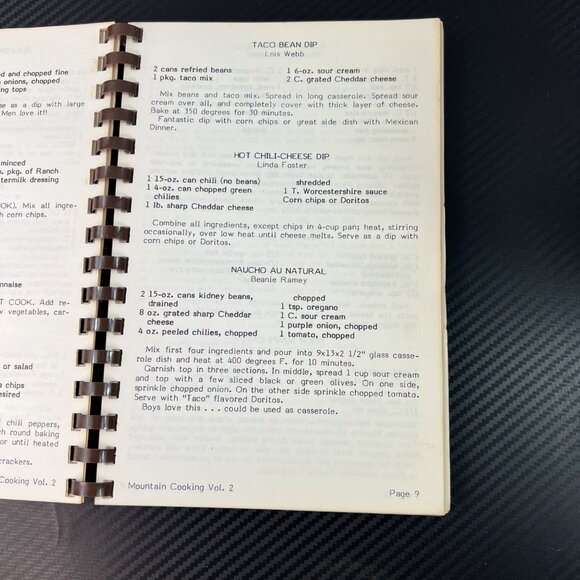 ed and chopped fine
onions, chopped
ng tops
se as a dip with large
Men love it!!
minced
pkg. of Ranch
termilk dressing
OK). Mix all ingre-
h corn chips.
nnaise
T COOK. Add re-
w vegetables, car-
or salad
chips
esired
chili peppers,
ch round baking
or until heated
crackers.
Cooking Vol. 2
TACO BEAN DIP
Lois Webb
2 cans refried beans
1 pkg. taco mix
1 6-oz. sour cream
2 C. grated Cheddar cheese
Mix beans and taco mix. Spread in long casserole. Spread sour
cream over all, and completely cover with thick layer of cheese.
Bake at 350 degrees for 30 minutes.
Fantastic dip with corn chips or great side dish with Mexican
Dinner.
HOT CHILI-CHEESE DIP
Linda Foster
1 15-oz. can chili (no beans)
1 4-oz. can chopped green
chilies
1 lb. sharp Cheddar cheese
shredded
1 T. Worcestershire sauce
Corn chips or Doritos
Combine all ingredients, except chips in 4-cup pan; heat, stirring
occasionally, over low heat until cheese melts. Serve as a dip with
corn chips or Doritos.
NAUCHO AU NATURAL
Beanie Ramey
2 15-oz. cans kidney beans,
drained
8 oz. grated sharp Cheddar
cheese
4 oz. peeled chilies, chopped
chopped
1 tsp. oregano
1 C. sour cream
1 purple onion, chopped
1 tomato, chopped
Mix first four ingredients and pour into 9x13x2 1/2" glass casse-
role dish and heat at 400 degrees F. for 10 minutes.
Garnish top in three sections. In middle, spread 1 cup sour cream
and top with a few sliced black or green olives. On one side,
sprinkle chopped onion. On the other side sprinkle chopped tomato.
Serve with "Taco" flavored Doritos.
Boys love this . . . could be used as casserole.
Mountain Cooking Vol. 2
Page 9